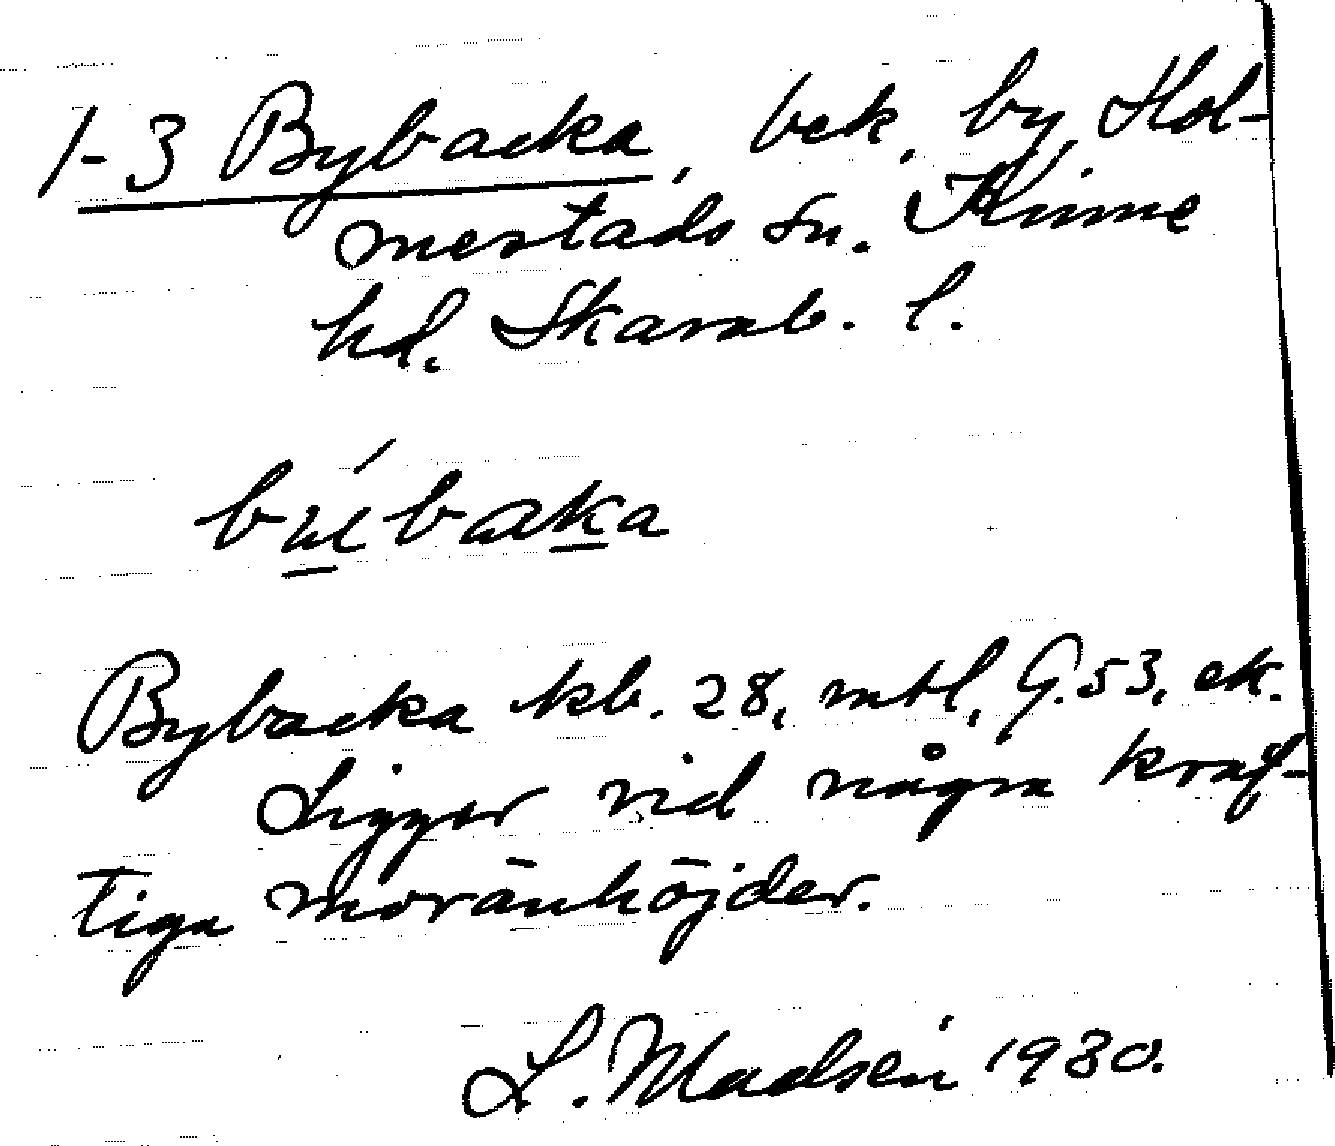 1-3 Bybacka, bek. by, Hol-
mestads sn. Kinne
hd. Skarab. l.
Bybacka kb. 28, mtl, G.53, ek.
Ligger vid några kraf-
tiga moränhöjder.
L. Madsén 1930.